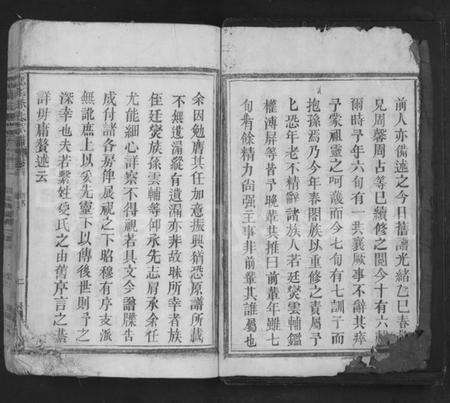 前人亦備述之今日舊譜光緒乙巳春
見周馨周占等已續修之閱今十有六
爾時予年六旬有一共襄厥事不辭其瘁
予蒙祖靈之呵護而今七旬有七訓丁而
抱孫焉乃今年春閤族以重修之責屬予
匕恐年老不精辭諸族人若廷燮雲輔鑑
權溥屏等昔予晚輩共推曰前輩年雖七
旬有餘精力尚强王事非前輩其誰屬也
余因勉膺其任加意振興猶恐原譜所載
不無遺漏縱有遺漏亦非故昧所幸者族
侄廷燮族孫雲輔等仰承先志肩承余任
尤能細心詳察不得視若具文今譜牒告
成付諸各房俾展視之下昭穆有序支派
無訛庶上以妥先靈下以傳後世則予之
深幸也夫若繫姓受氏之由舊序言之綦
詳毋庸贅述云